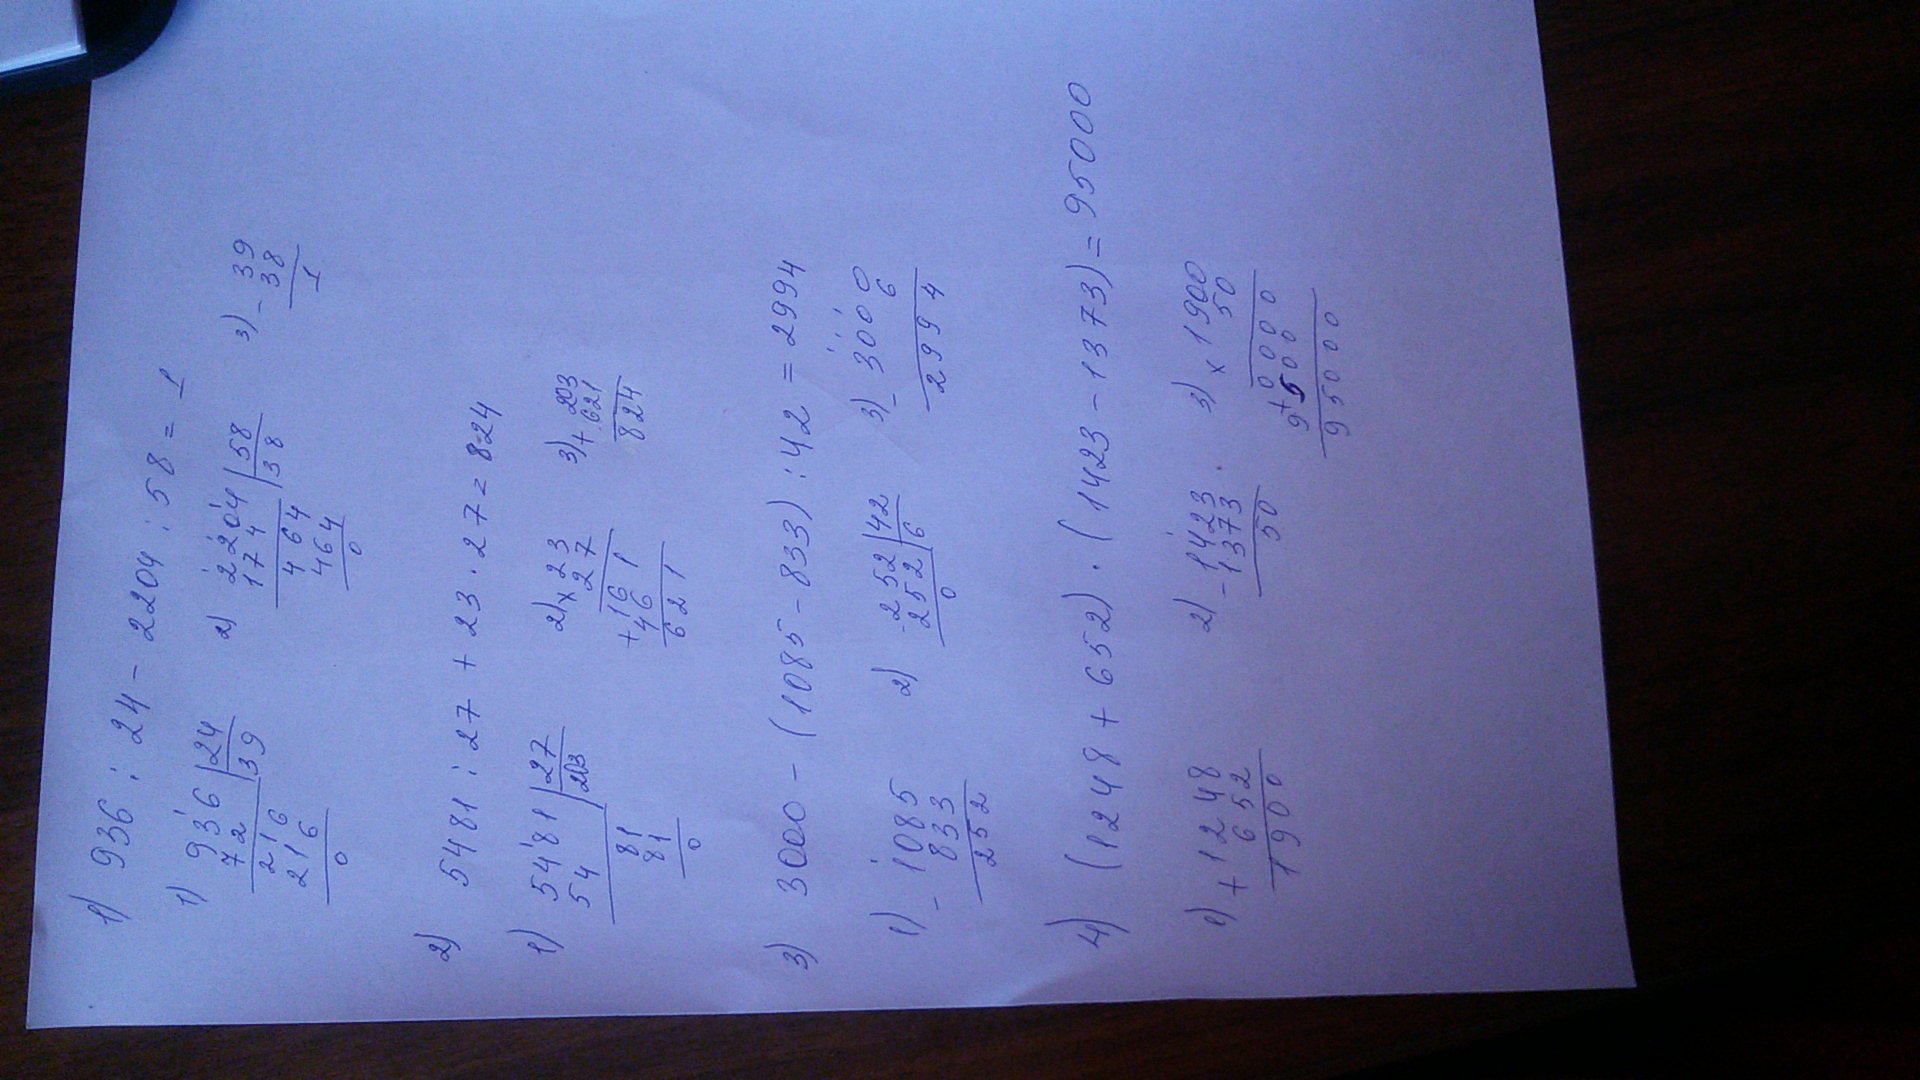 1) 936 : 24 - 2204 : 58 = 1
1) 936 | 24 2) 2204 | 58 3) - 39
72 39 174 38 38
216 464 1
216 464
0 0
2) 5481 : 27 + 23 · 27 = 824
1) 5481 | 27 2) × 23 3) + 203
54 203 27 621
81 161 824
81 + 46
0 621
3) 3000 - (1085 - 833) : 42 = 2994
1) - 1085 2) - 252 | 42 3) - 3000
833 252 6 6
252 0 2994
4) (1248 + 652) · (1423 - 1373) = 95000
1) + 1248 2) - 1423 3) × 1900
652 1373 50
1900 50 0000
+ 9500
95000